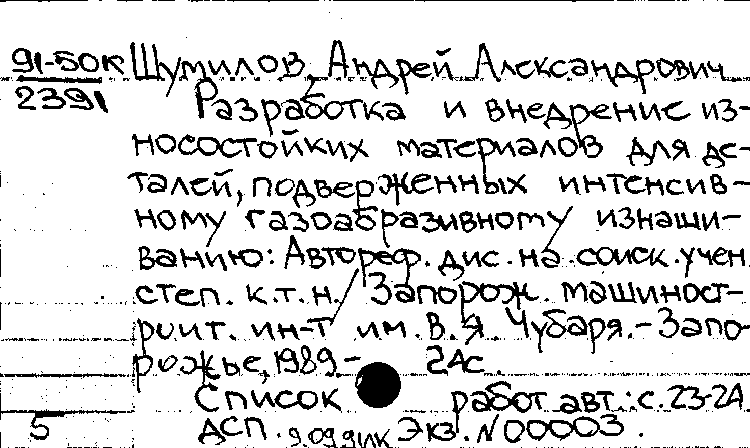 91-50К Шумилов, Андрей Александрович
2391 Разработка и внедрение из-
носостойких материалов для де-
талей, подверженных интенсив-
ному газоабразивному изнаши-
ванию: Автореф. дис. на соиск. учен.
степ. к.т.н./ Запорож. машиност-
роит. ин-т им. В.Я Чубаря. - Запо-
рожье, 1989 - 24с.
Список работ авт.: с. 23-24
5 ДСП. 9.09.91 Экз. N 00003.